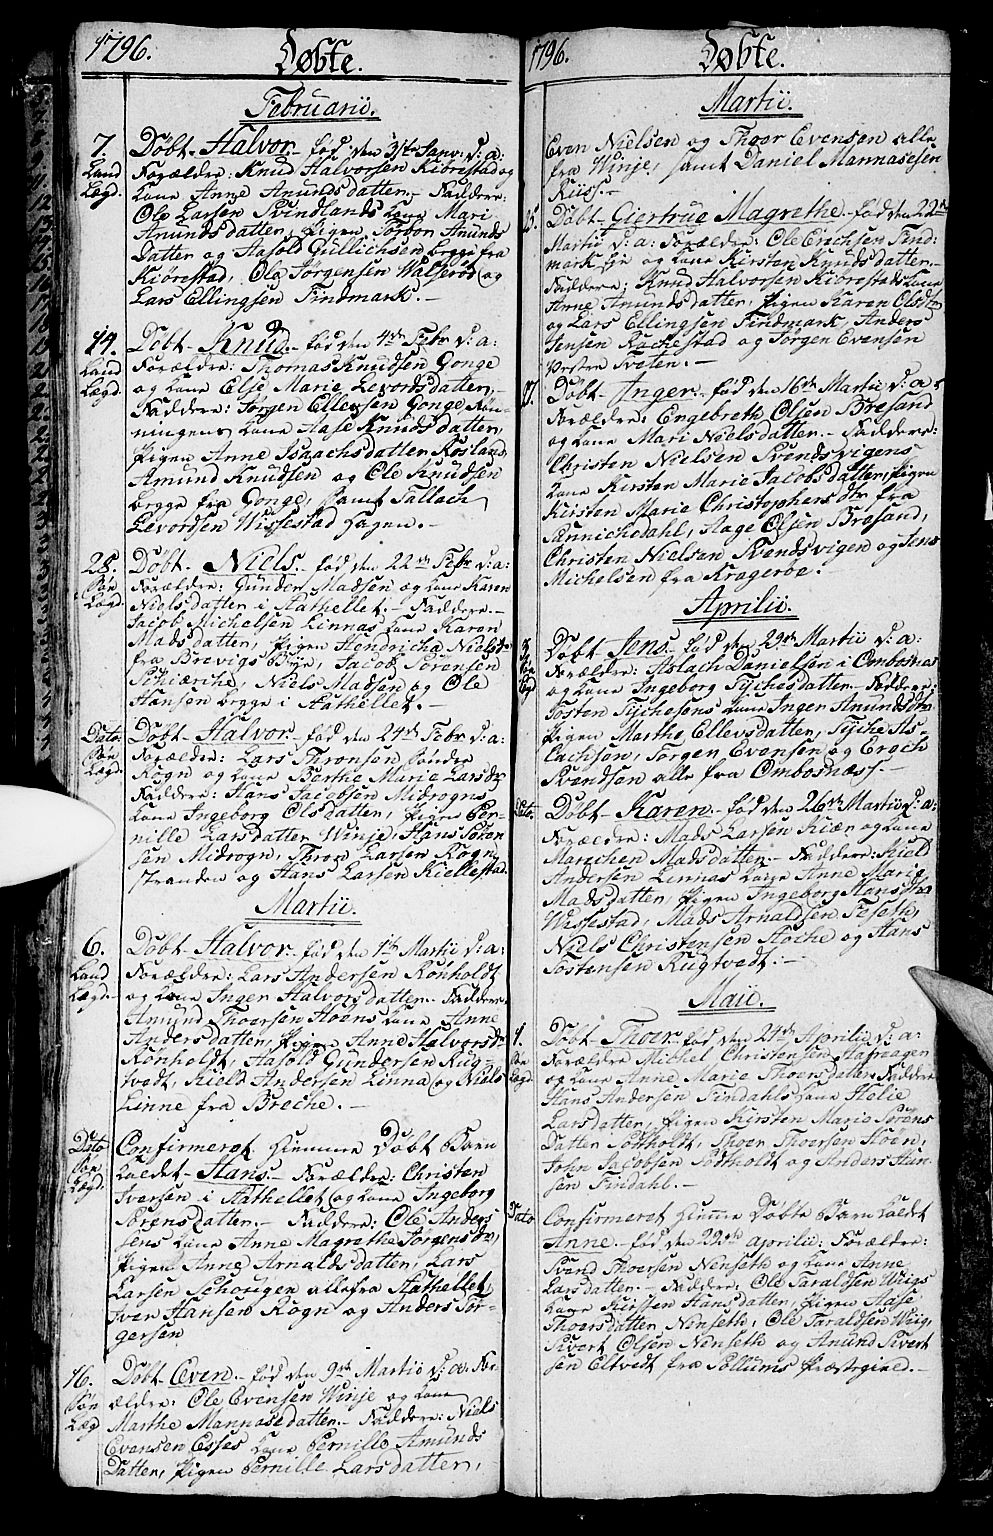 1796.
Døbte.
Februarii.
7.
Land
Lægd.
Døbt Halvor fød den 31te Janv: d: a:
Forældre: Knud Halvorsen Kiørestad og
kone Anne Amundsdatter. Faddere:
Ole Larsen Svindlands kone Mari
Amundsdatter, Pigen Torbor Amunds
Datter og Aasold Gullichsen begge fra
Kiørestad, Ole Jørgensen Valserød og
Lars Ellingsen Findmark.
14.
Land
Lægd.
Døbt Knud fød den 4de Febr d: a:
Forældre: Thomas Knudsen Gonge
og kone Else Marie Levordsdatter.
Faddere: Jørgen Ellevsen Gonge Røn-
ningens kone Aase Knudsdatter,
Pigen Anne Isaachsdatter Rosland
Amund Knudsen og Ole Knudsen
begge fra Gonge, samt Sallach
Levordsen Wissestad Hagen.
28.
Søe
Lægd.
Døbt Niels fød den 22de Febr d: a:
Forældre: Gunder Madsen og kone Karen
Nielsdatter i Aathellet. Faddere.
Jacob Michelsen Linnas kone Karen
Madsdatter, Pigen Hendriche Nielsdr
fra Brevigs Bye, Jacob Sørensen
Schiærche, Niels Madsen og Ole
Hansen begge i Aathellet.
Dato
Søe
Lægd.
Døbt Halvor fød den 24de Febr d: a:
Forældre: Lars Thronsen Søndre
Rogn og kone Barthe Marie Larsdr
Faddere: Hans Jacobsen Midrogns
kone Ingeborg Olsdatter, Pigen Per-
nille Larsdatter Winje, Hans Søren
sen Midrogn, Thron Larsen Rogn
stranden og Hans Larsen Kiellestad.
Martii.
6.
Land
Lægd.
Døbt Halvor fød den 1te Martii d: a:
Forældre: Lars Andersen Rønholdt
og kone Inger Halvorsdatter. Faddere.
Amund Thorsen Hoens kone Anne
Andersdatter, Pigen Anne Halvorsdr
Rønholdt, Aasold Gundersen Rug-
tvedt, Kield Andersen Linna og Niels
Linne fra Breche.
Dato
Søe
Lægd.
Confirmeret hiemme Døbt Barn
kaldet Hans. Forældre: Christen
Iversen i Aathellet og kone Ingeborg
Sørensdatter. Faddere: Ole Anders
sens kone Anne Magrethe Jørgensdr,
Pigen Anne Arnaldsdatter, Lars
Larsen Schotigen alle fra Aathellet,
Iver Hansen Rogn og Anders Jør-
gersen
16.
Søe
Lægd
Døbt Even fød den 9de Martii d: a: For
ældre: Ole Evensen Winje og kone
Marthe Mannasedatter. Faddere: Niels
Evensen Esses kone Pernille Amunds
Datter, Pigen Pernille Larsdatter,
1796.
Døbte.
Martii.
Even Nielsen og Thoor Evensen alle
fra Winje, samt Daniel Mannasesen
Riis.
25.
Døbt Giertrue Magrethe fød den 22de
Martii d: a: Forældre: Ole Erichsen Find-
mark Eje og kone Kirsten Knudsdatter.
Faddere: Knud Halvorsen Kiørestads kone
Anne Amundsdatter, Pigen Karen Olsdtr
og Lars Ellingsen Findmark, Anders
Jensen Rachestad og Jørgen Evensen
Vestre Tveten.
27.
Døbt Inger fød den 16de Martii d: a:
Forældre: Engebreth Olsen Bresand
og kone Mari Nielsdatter. Faddere:
Christen Nielsen Svendsvigens
kone Kirsten Marie Jacobsdatter, Pigen
Kirsten Marie Christophersdtr fra
Sannichedahl, Aage Olsen Bresand,
Christen Nielsen Svendsvigen og Jens
Michelsen fra Kragerøe.
Aprilii.
3.
Søe
Lægd
Døbt Jens fød den 29de Martii d: a:
Forældre: Aslach Danielsen i Ombosnæs
og kone Ingeborg Tychesdatter. Faddere:
Tosten Tychesens kone Inger Amundsdtr
Pigen Marthe Ellevsdatter, Tyche As-
lachsen, Torgen Evensen og Erach
Svendsen alle fra Ombosnæss.
Dato.
Døbt Karen fød den 26de Martii d: a:
Forældre: Mads Larsen Kiær og kone
Marichen Madsdatter. Faddere: Kield
Andersen Linnas kone Anne Marie
Madsdatter, Pigen Ingeborg Hansdtr
Wissestad, Mads Arnaldsen Foseth,
Niels Christensen Aache og Hans
Tostensen Rugtvedt.
Maii.
1.
Søe
Lægd
Døbt Thoer fød den 24de Aprilii d: a:
Forældre Michel Christensen Aafneagen
og kone Anne Marie Thoersdatter. Faddere
Hans Andersen Findahls kone Helie
Larsdatter, Pigen Kirsten Marie Sørens
Datter Sootholdt, Thoer Thoersen Hoen,
John Jacobsen Sootholdt og Anders Han-
sen Findahl.
Dato
Confirmeret hiemme Døbte Barn kaldet
Anne fød den 22de aprilii: Forældre:
Svend Thoersen Nenseth og kone Anne
Larsdatter. Faddere, Ole Taraldsen Wiigs
kone Kirsten Hansdatter, Pigen Aase
Thoersdatter Nenseth, Ole Taraldsen Wiig,
Sivert Olsen Nenseth og Amund Sivert
sen Eltvedt fra Sollums Præstegield.